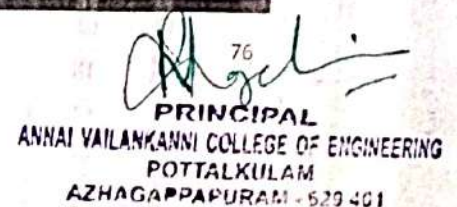 76
PRINCIPAL
ANNAI VAILANKANNI COLLEGE OF ENGINEERING
POTTALKULAM
AZHAGAPPAPURAM - 629 401